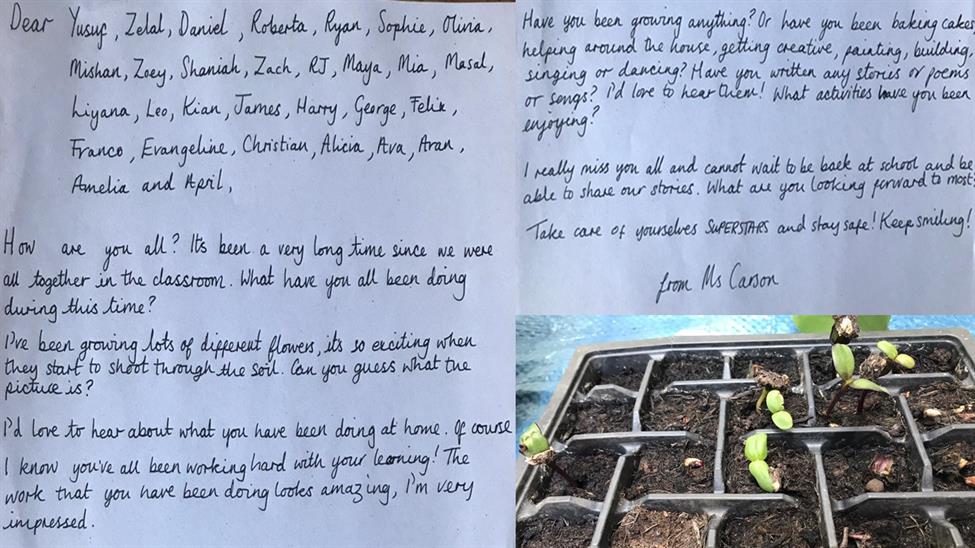 Dear Yusuf, Zelal, Daniel, Roberta, Ryan, Sophie, Olivia,
Mishan, Zoey, Shaniah, Zach, RJ, Maya, Mia, Masal,
Liyana, Leo, Kian, James, Harry, George, Felix,
Franco, Evangeline, Christian, Alicia, Ava, Aran,
Amelia and April,
How are you all? Its been a very long time since we were
all together in the classroom. What have you all been doing
during this time?
I've been growing lots of different flowers, its so exciting when
they start to shoot through the soil. Can you guess what the
picture is?
I'd love to hear about what you have been doing at home. Of course
I know you've all been working hard with your learning! The
work that you have been doing looks amazing, I'm very
impressed.
Have you been growing anything? Or have you been baking cakes,
helping around the house, getting creative, painting, building,
singing or dancing? Have you written any stories or poems
or songs? I'd love to hear them! What activities have you been
enjoying?
I really miss you all and cannot wait to be back at school and be
able to share our stories. What are you looking forward to most?
Take care of yourselves SUPERSTARS and stay safe! Keep smiling!
from Ms Carson